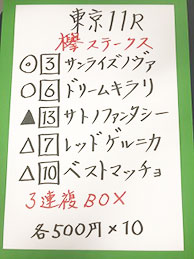 東京11R
欅ステークス
◎3サンライズノヴァ
○6ドリームキラリ
▲13サトノファンタシー
△7レッドゲルニカ
△10ベストマッチョ
3連複BOX
各500円×10